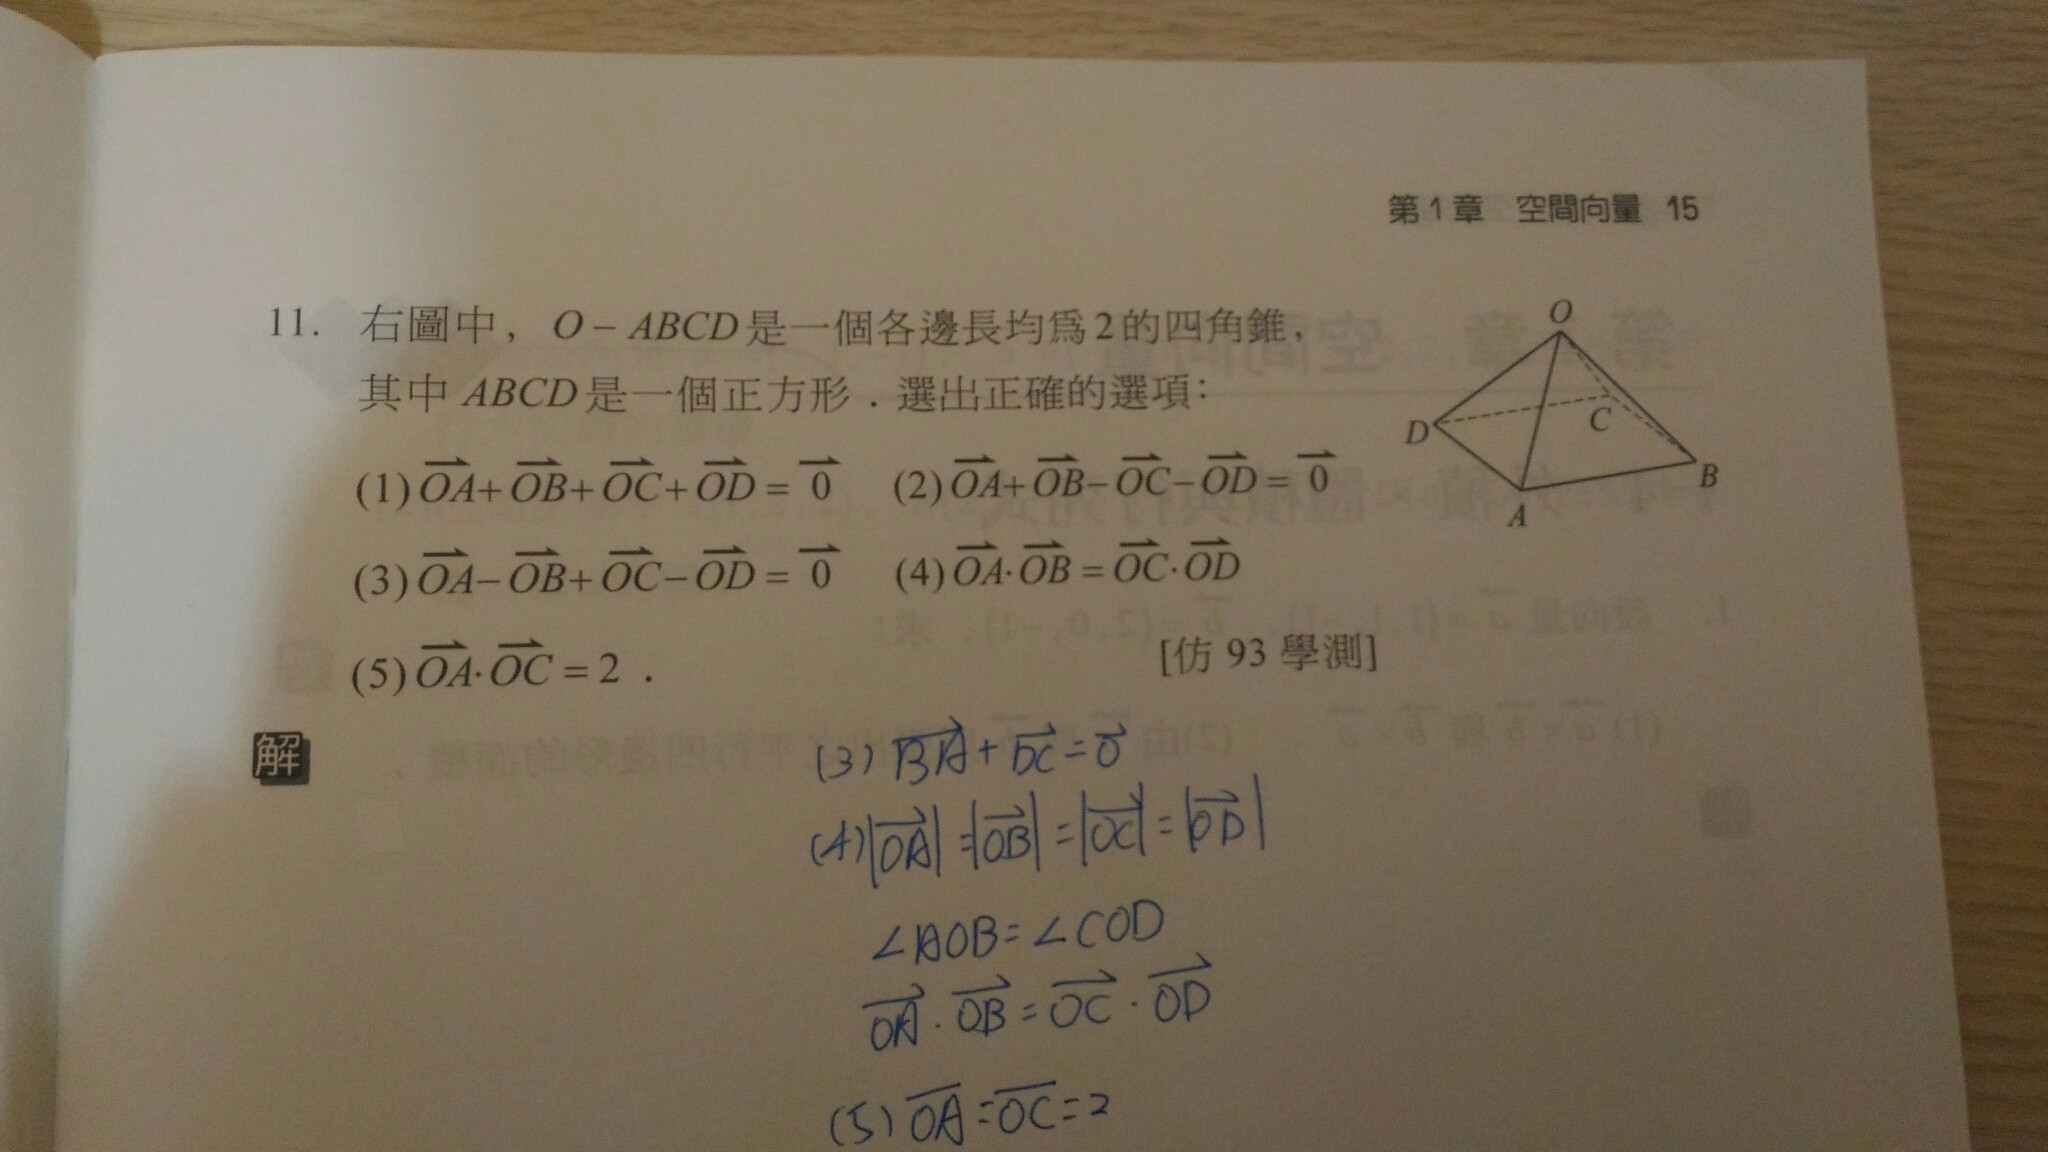 第1章 空間向量 15
11. 右圖中，O－ABCD是一個各邊長均為2的四角錐，
其中ABCD是一個正方形．選出正確的選項：
(1) $\overrightarrow{OA}+\overrightarrow{OB}+\overrightarrow{OC}+\overrightarrow{OD}=\overrightarrow{0}$ (2) $\overrightarrow{OA}+\overrightarrow{OB}-\overrightarrow{OC}-\overrightarrow{OD}=\overrightarrow{0}$
(3) $\overrightarrow{OA}-\overrightarrow{OB}+\overrightarrow{OC}-\overrightarrow{OD}=\overrightarrow{0}$ (4) $\overrightarrow{OA}\cdot\overrightarrow{OB}=\overrightarrow{OC}\cdot\overrightarrow{OD}$
(5) $\overrightarrow{OA}\cdot\overrightarrow{OC}=2$．
[仿 93 學測]
O
D
C
B
A
解
(3) $\overrightarrow{BA}+\overrightarrow{DC}=\overrightarrow{0}$
(4) $|\overrightarrow{OA}|=|\overrightarrow{OB}|=|\overrightarrow{OC}|=|\overrightarrow{OD}|$
∠AOB=∠COD
$\overrightarrow{OA}\cdot\overrightarrow{OB}=\overrightarrow{OC}\cdot\overrightarrow{OD}$
(5) $\overline{OA}=\overline{OC}=2$